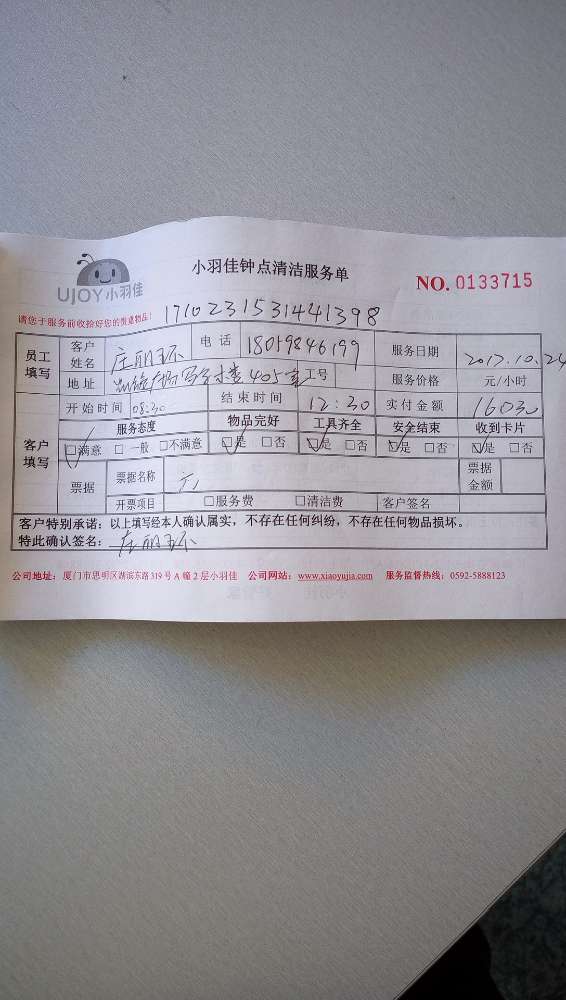 UJOY小羽佳
小羽佳钟点清洁服务单
NO. 0133715
请您于服务前收拾好您的贵重物品!
1710231531441398
员工填写 客户姓名 庄丽环 电话 18059846199 服务日期 2017.10.24
地址 写字楼405室 工号 服务价格 元/小时
客户填写 开始时间 08:30 结束时间 12:30 实付金额 160元
服务态度 物品完好 工具齐全 安全结束 收到卡片
☑满意 □一般 □不满意 ☑是 □否 ☑是 □否 ☑是 □否 ☑是 □否
票据 票据名称 票据金额
开票项目 □服务费 □清洁费 客户签名
客户特别承诺:以上填写经本人确认属实,不存在任何纠纷,不存在任何物品损坏。
特此确认签名: 庄丽环
公司地址:厦门市思明区湖滨东路319号A幢2层小羽佳 公司网站:www.xiaoyujia.com 服务监督热线:0592-5888123